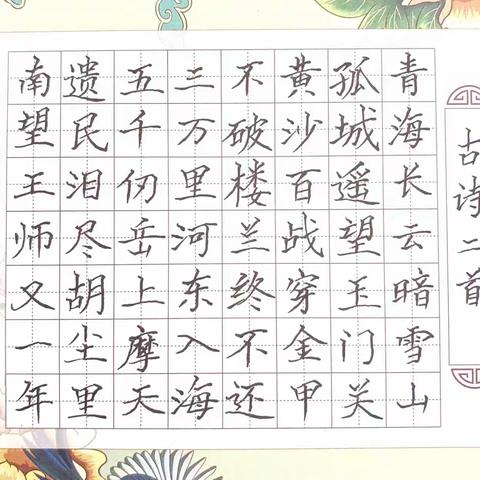 古诗二首
青海长云暗雪山
孤城遥望玉门关
黄沙百战穿金甲
不破楼兰终不还
三万里河东入海
五千仞岳上摩天
遗民泪尽胡尘里
南望王师又一年